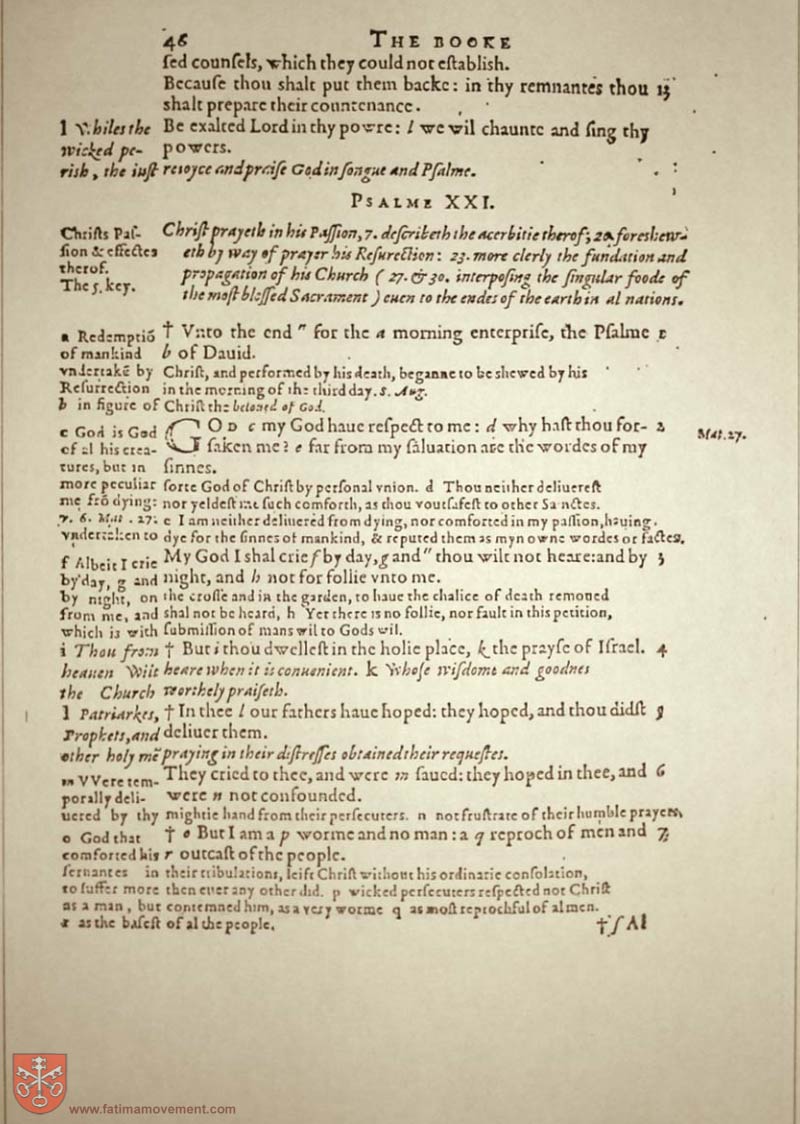 46 THE BOOKE
sed counsels, which they could not establish.
Because thou shalt put them backe: in thy remnantes thou 13
shalt prepare their countenance.
l Whiles the Be exalted Lord in thy powre: l we wil chaunte and sing thy
wicked pe- powers.
rish, the iust reioyce and praise God in songue and Psalme.
PSALME XXI.
Christs Pas- Christ prayeth in his Passion, 7. describeth the acerbitie therof; 20. foreshew-
sion & effectes eth by way of prayer his Resurection: 23. more clerly the fundation and
therof. propagation of his Church (27. & 30. interposing the singular foode of
The 5. key. the most blessed Sacrament) euen to the endes of the earth in al nations.
a Redemptiõ † Vnto the end " for the a morning enterprise, the Psalme 1
of mankind b of Dauid.
vndertakẽ by Christ, and performed by his death, beganne to be shewed by his
Resurrection in the morning of the third day. S. Aug.
b in figure of Christ the beloued of God.
c God is God GOD c my God haue respect to me: d why hast thou for- 2 Mat. 27.
of al his crea- saken me? e far from my saluation are the wordes of my
tures, but in sinnes.
more peculiar sorte God of Christ by personal vnion. d Thou neither deliuerest
me frõ dying: nor yeldest me such comforth, as thou voutsafest to other Sainctes.
v. 6. Mat. 27. e I am neither deliuered from dying, nor comforted in my passion, hauing
vndertaken to dye for the sinnes of mankind, & reputed them as myn owne wordes or factes.
f Albeit I crie My God I shal crie f by day, g and " thou wilt not heare: and by 3
by day, g and night, and h not for follie vnto me.
by night, on the crosse and in the garden, to haue the chalice of death remoued
from me, and shal not be heard, h Yet there is no follie, nor fault in this petition,
which is with submission of mans wil to Gods wil.
i Thou from † But i thou dwellest in the holie place, k the prayse of Israel. 4
heauen wilt heare when it is conuenient. k Whose wisdome and goodnes
the Church worthely praiseth.
l Patriarkes, † In thee l our fathers haue hoped: they hoped, and thou didst 5
Prophets, and deliuer them.
other holy mẽ praying in their distresses obtained their requestes.
m VVere tem- They cried to thee, and were m saued: they hoped in thee, and 6
porally deli- were n not confounded.
uered by thy mightie hand from their persecuters. n not frustrate of their humble prayers,
o God that † o But I am a p worme and no man: a q reproch of men and 7
comforted his r outcast of the people.
seruantes in their tribulations, leift Christ without his ordinarie consolation,
to suffer more then euer any other did. p wicked persecuters respected not Christ
as a man, but contemned him, as a very worme q as most reprochful of al men.
r as the basest of al the people. † s Al
www.fatimamovement.com